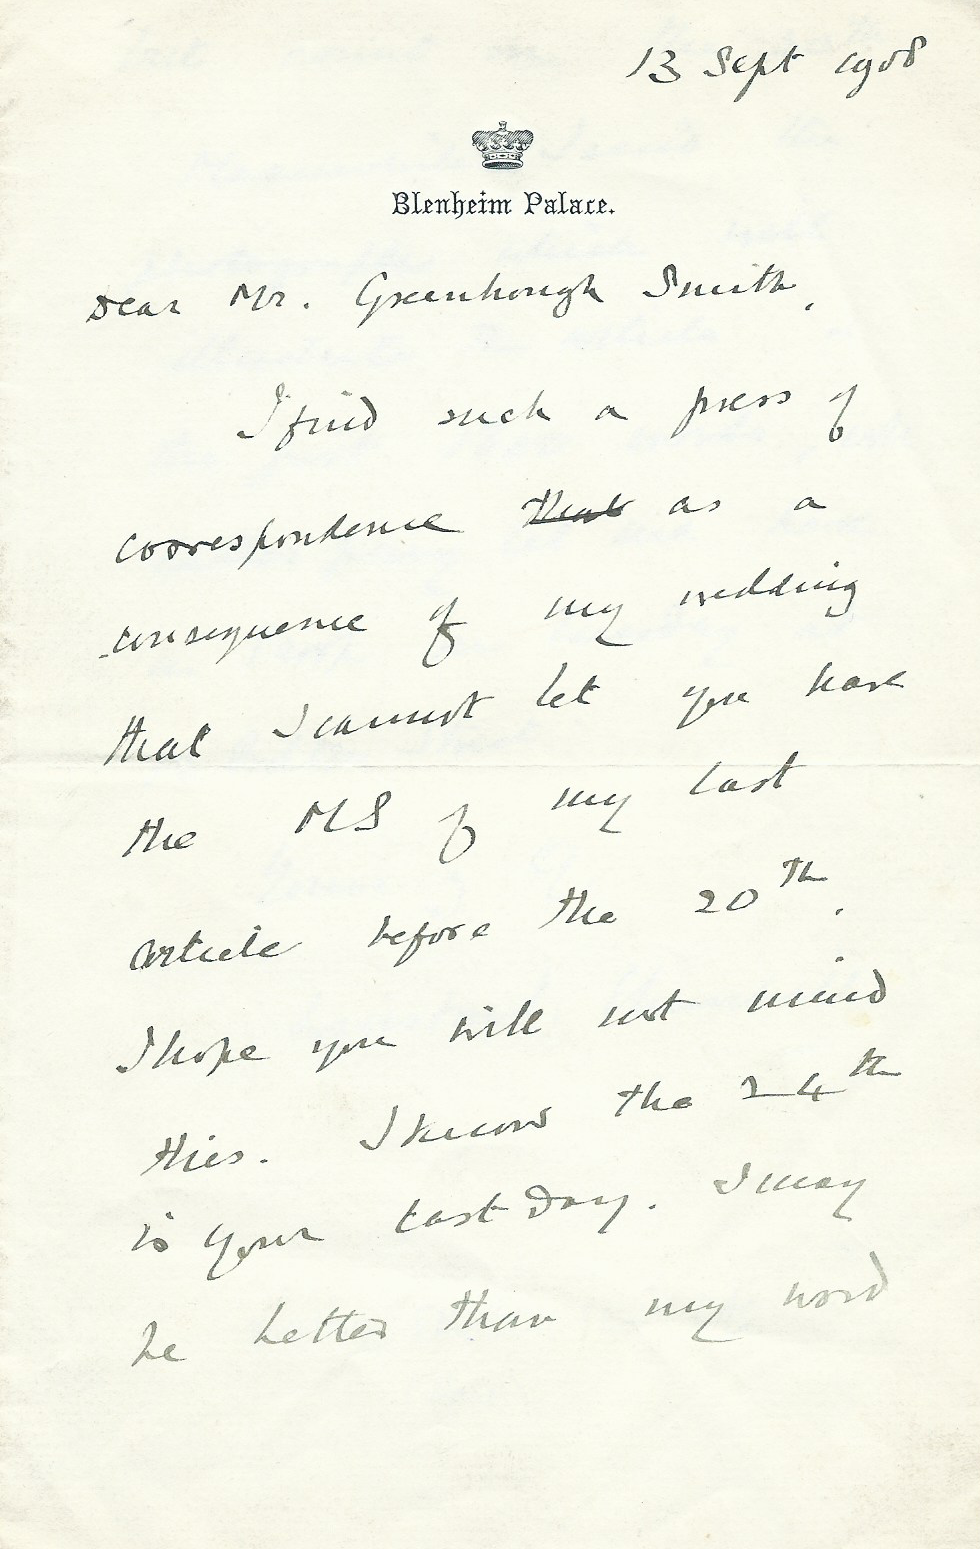 13 Sept 1908
Blenheim Palace.
Dear Mr. Greenhough Smith,
I find such a press of
correspondence that as a
consequence of my wedding
that I cannot let you have
the MS of my last
article before the 20th.
I hope you will not mind
this. I know the 24th
is your last day. I may
be better than my word